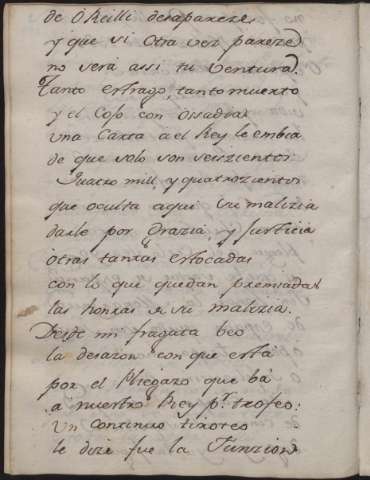 de OReilli desapareze,
y que si otra vez pareze
no será assi tu ventura.
Tanto estrago, tanto muerto
y el Cojo con ossadia
una Carta a el Rey le embia
de que solo son seiszientos
Quatro mill, y quatrozientos
que oculta aqui su malizia
darle por Grazia, y Justicia
otras tantas estocadas
con lo que quedan premiadas
las honras de su malizia.
Desde mi fragata beo
la desazon con que está
por el Pliegazo que bá
a nuestro Rey pr. trofeo:
Un Continuo tiroteo
le dize fue la Funzion